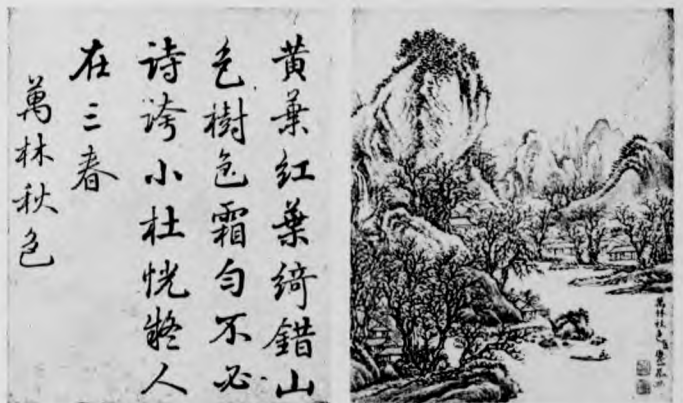 黄葉紅葉綺錯山
色樹色霜勻不必
詩誇小杜恍疑人
在三春
萬林秋色
萬林秋色